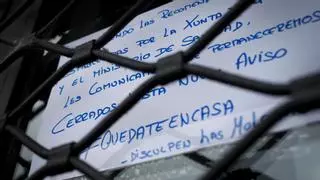 ndo las Recomend
das por la Xunta
y el Ministerio de Sanidad,
les comunicamos que permaneceremos
Cerrados hasta nuevo Aviso
#QUEDATEENCASA
- Disculpen las Mole